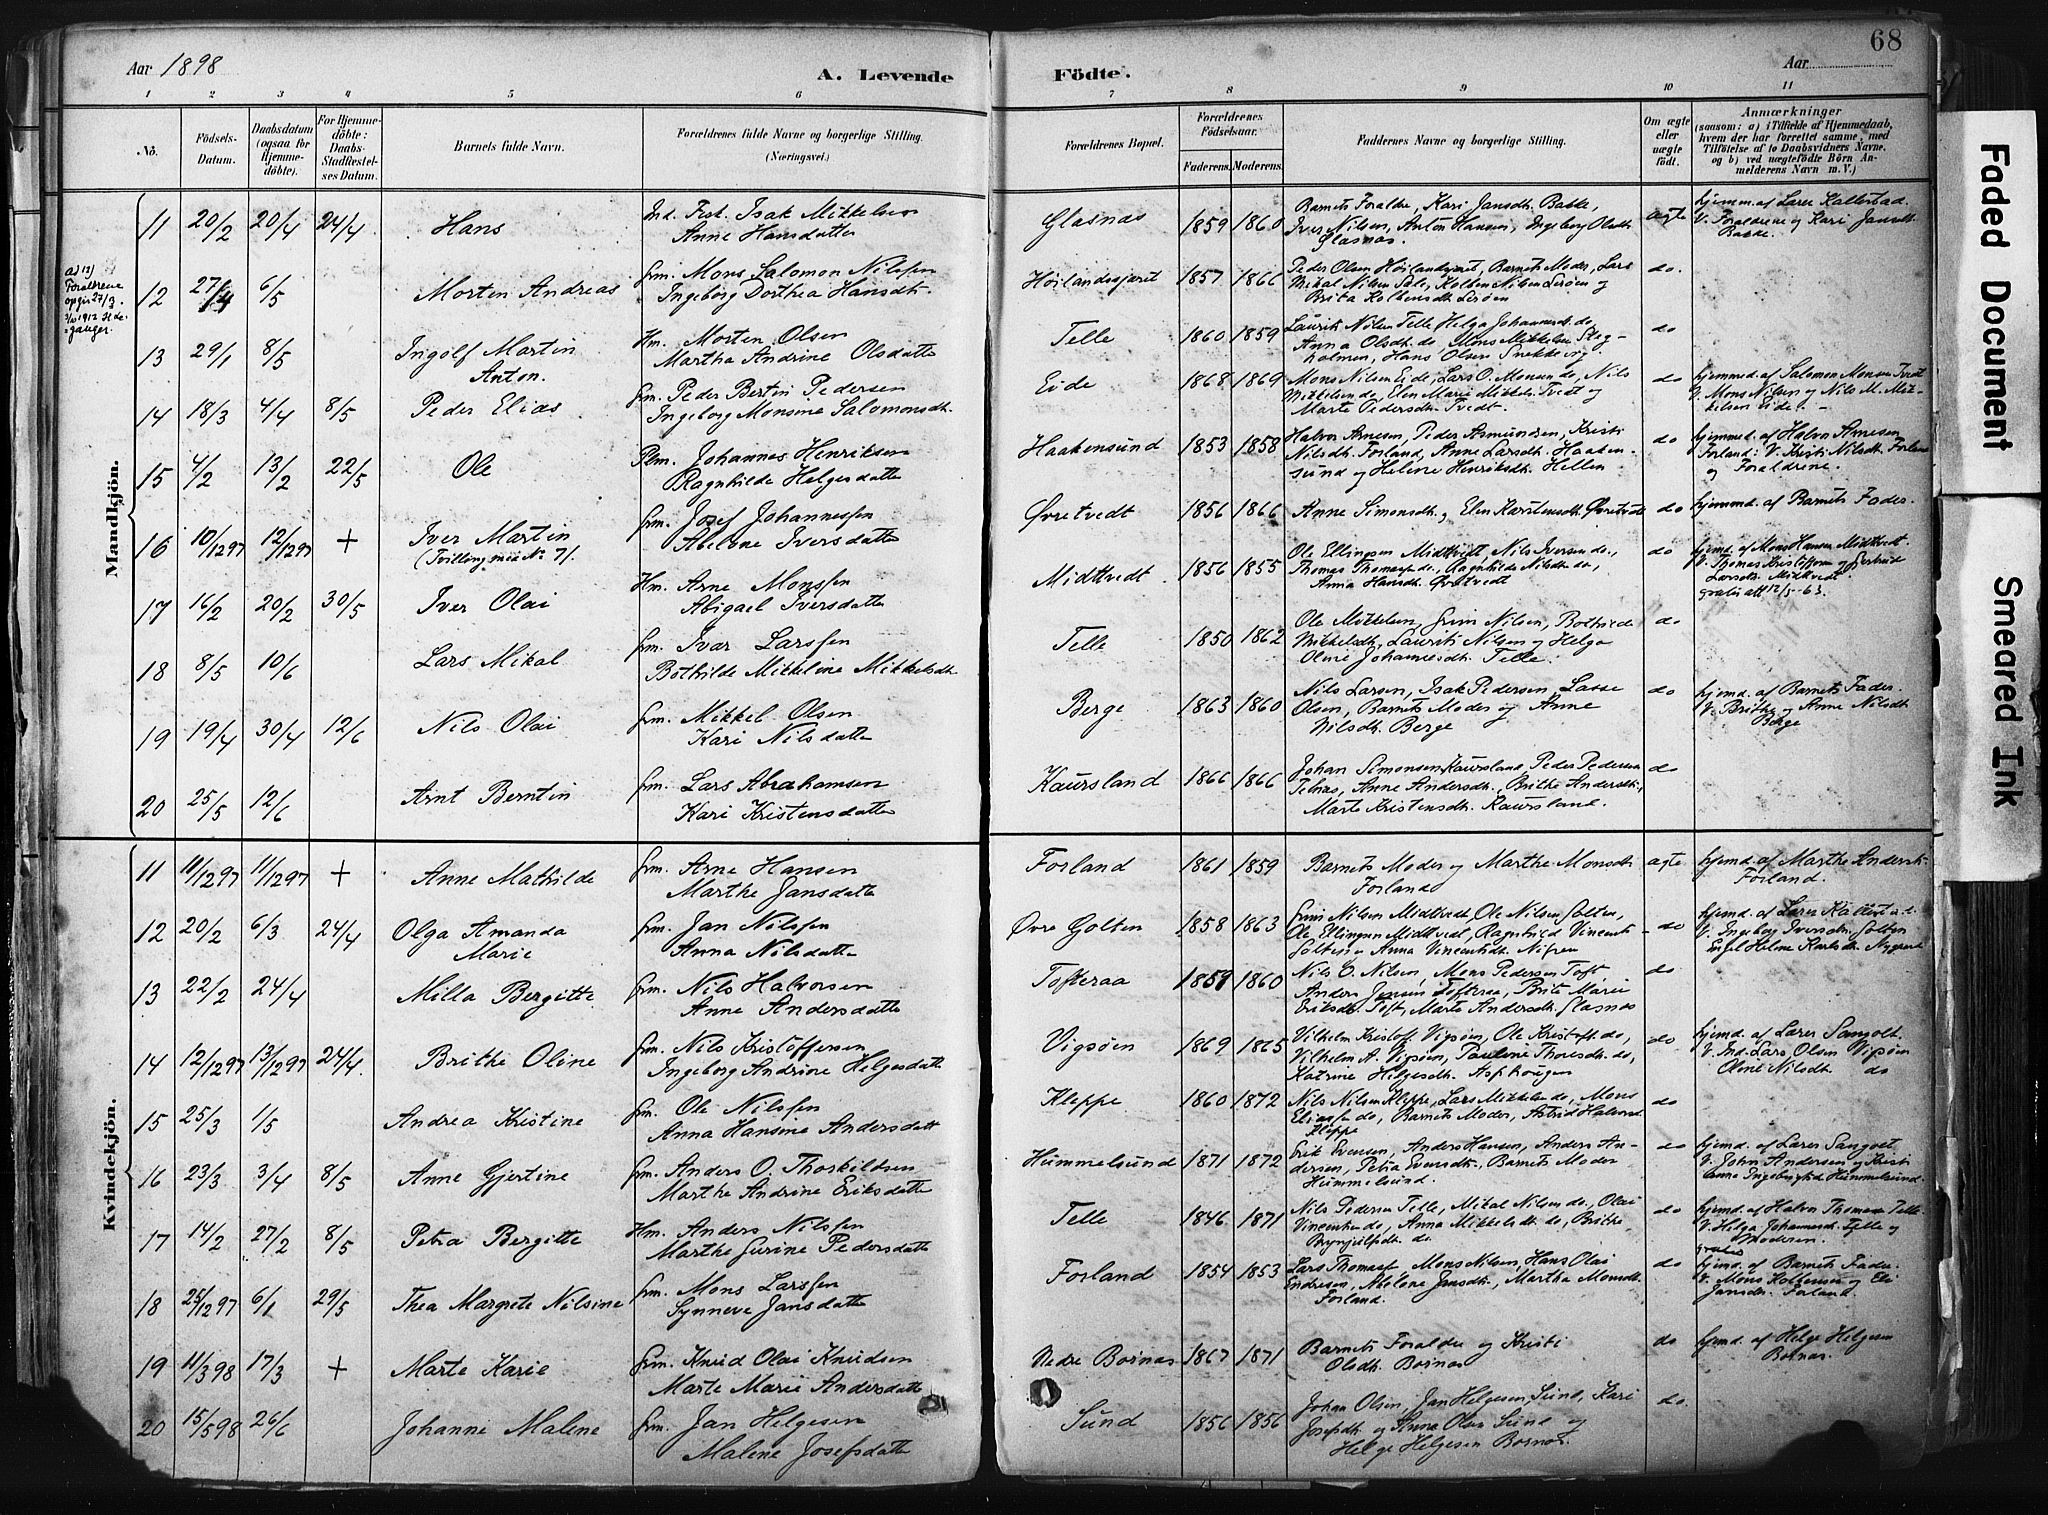 68
Aar 1898
A. Levende Födte.
Aar
1 2 3 4 5 6 7 8 9 10 11
No.
Födsels-Datum.
Daabsdatum (ogsaa for Hjemmedöbte).
For Hjemmedöbte: Daabs-Stadfestelses Datum.
Barnets fulde Navn.
Forældrenes fulde Navne og borgerlige Stilling.
(Næringsvei.)
Forældrenes Bopæl.
Forældrenes Födselsaar.
Faderens. Moderens.
Faddernes Navne og borgerlige Stilling.
Om ægte eller uægte födt.
Anmærkninger
(saasom: a) i Tilfælde af Hjemmedaab, hvem der har forrettet samme, med Tilföielse af to Daabsvidners Navne, og b) ved uægtefödte Börn Anmelderens Navn m. V.)
Mandkjön.
11 20/2 20/4 24/4 Hans
Ind. Fisk. Isak Mikkelsen
Anne Hansdatter
Glasnas 1859 1860
Barnets Foraldre, Kari Jansdt. Bakke,
Iver Nilsen, Anton Hansen, Ingeborg Olsdt.
Glasnas.
ægte
hjemm. af Lærer Kallestad.
V. Foraldrene og Kari Jansdt.
Bakke.
ad 12)
Foraldrene
opgir 27/3.
12 27/4 6/5 Morten Andreas
frm. Mons Salomon Nilssen
Ingeborg Dorthea Hansdt.
Høilandssjøret 1857 1866
Peder Olsen Høilandsjøret, Barnets Moder, Lars
Mikal Nilsen Sele, Kolben Nilsen Lerøen og
Brita Kolbensdt. Lerøen
do.
13 29/1 8/5 Ingolf Martin
Anton.
Hm. Morten Olsen
Martha Andrine Olsdatter
Telle 1860 1859
Laurits Nilsen Telle, Helga Johannesdt. do,
Anna Olsdt. do, Mons Mikkelsen Steg-
holmen, Hans Olsen Snekkevig.
do
14 18/3 4/4 8/5 Peder Elias
frm. Peder Bertin Pedersen
Ingeborg Monsine Salomonsdt.
Eide 1868 1869
Mons Nilsen Eide, Lars O. Monsen do, Nils
Mikkelsen do, Elen Marie Mikkelsdt. Tvedt og
Marte Pedersdt. Tvedt.
do
hjemmed. af Salomon Monsen Tvedt
V. Mons Nilsen og Nils M. Mik-
kelsen Eide.
15 4/2 13/2 22/5 Ole
Plm. Johannes Henriksen
Ragnhilde Helgesdatter
Haakensund 1853 1858
Halvor Arnesen, Peder Asmundsen, Kristi
Nilsdt. Forland, Anne Larsdt. Haaken-
sund og Helene Henriksdt. Hellen
do
hjemmed. af Halvor Arnesen
Forland: V. Kristi Nilsdt. Forland
og Foraldrene.
16 10/12 97 12/12 97 + Iver Martin
(Tvilling med No 7).
frm. Josef Johannessen
Abelone Iversdatter
Øvretvedt 1856 1866
Anne Simonsdt. og Elen Karstensdt. Øvretvedt
do
hjemmed. af Barnets Fader.
17 16/2 20/2 30/5 Iver Olai
Hm. Arne Monssen
Abigael Iversdatter
Midttvedt 1856 1855
Ole Ellingsen Midttvedt, Nils Iversen do,
Thomas Thomassen do, Ragnhilde Nilsdt. do,
Anna Hansdt. Øvretvedt
do
hjemd. af Mons Hansen Midttvedt
V. Thomas Kristoffersen og Gertrud
Larsdt. Midttvedt.
18 8/5 10/6 Lars Mikal
frm. Ivar Larssen
Bothilde Mikkeline Mikkelsdt.
Telle 1850 1862
Ole Mikkelsen, Grim Nilsen, Bothilde
Mikkelsdt., Laurits Nilsen og Helga
Oline Johannesdt. Telle.
do
19 19/4 30/4 12/6 Nils Olai
frm. Mikkel Olsen
Kari Nilsdatter
Berge 1863 1860
Nils Larsen, Isak Pedersen, Lasse
Olsen, Barnets Moder og Anne
Nilsdt. Berge
do
hjemd. af Barnets Fader.
V. Brithe og Anne Nilsdt
Berge
20 25/5 12/6 Arnt Berntin
frm. Lars Abrahamsen
Kari Kristensdatter
Kaursland 1866 1866
Johan Simonsen Kaursland, Peder Pedersen
Tofnas, Anne Andersdt., Brithe Andersdt.,
Marte Kristensdt. Kaursland.
do
Kvindekjön.
11 11/12 97 11/12 97 + Anne Mathilde
frm. Arne Hansen
Marthe Jansdatter
Forland 1861 1859
Barnets Moder og Marthe Monsdt.
Forland
ægte
hjemd. af Marthe Andersdt.
Forland.
12 20/2 6/3 24/4 Olga Amanda
Marie
frm. Jan Nilssen
Anna Nilsdatter
Øvre Golten 1858 1863
Grim Nilsen Midttvedt, Ole Nilsen Golten,
Ole Ellingsen Midttvedt, Ragnhild Vincents-
Golten og Anna Vincentsdt.
do
hjemd. af Lærer Kallestad.
V. Ingeborg Iversdtr. Golten
Engel Helene Karlsdt.
13 22/2 24/4 Milla Bergitte
frm. Nils Halvorsen
Anne Andersdatter
Tofteraa 1859 1860
Nils O. Nilsen, Mons Pedersen Toft,
Anders Jensen Tofteraa, Brite Marie
Eriksdt. Toft, Marte Andersdt. Glasnas
do
14 12/12 97 13/12 97 24/4 Brithe Oline
frm. Nils Kristoffersen
Ingeborg Andrine Helgesdatter
Vigsøen 1869 1865
Vilhelm Kristoff. Vigsøen, Ole Kristoff. do,
Vilhelm A. Vigsøen, Pauline Thoresdt. do,
Katrine Helgesdt. Asphaugen
do
hjemd. af Lærer Sangolt.
V. Ind. Lars Olsen Vigsøen
Oline Nilsdt. do
15 25/3 1/5 Andrea Kristine
frm. Ole Nilssen
Anna Hansine Andersdatt
Kleppe 1860 1872
Nils Nilsen Kleppe, Lars Mikkelsen do, Mons
Eliassen do, Barnets Moder, Astrid Halvorsdt.
Kleppe
do
16 23/3 3/4 8/5 Anne Gjertine
frm. Anders O. Thorkildsen
Marthe Andrine Eriksdatter
Hummelsund 1871 1872
Erik Evensen, Anders Hansen, Anders An-
dersen, Petra Evensdt., Barnets Moder
Hummelsund.
do
hjemd. af Lærer Sangolt.
V. John Andersen og Kristi
Anne Ingebrigtsd Hummelsund.
17 14/2 27/2 8/5 Petra Bergitte
Hm. Anders Nilssen
Marthe Gurine Pedersdatter
Telle 1846 1871
Nils Pedersen Telle, Mikal Nilsen do, Olai
Vincentsen do, Anna Mikkelsdt. do, Brithe
Brynjulfsdt. do
do
hjemd. af Halvor Thomasen Telle
V. Helga Johannesdt. Telle og
Moderen.
18 25/12 97 6/1 29/5 Thea Margrete Nilsine
frm. Mons Larssen
Synneve Jansdatter
Forland 1854 1853
Lars Thomass, Mons Nilsen, Hans Olai
Endresen, Malene Jansdt., Martha Monsdt.
Forland.
do
hjemd. af Barnets Fader.
V. Mons Kolbensen og Eli
Jansdt. Forland
19 11/3 98 17/3 + Marte Karie
frm. Knud Olai Knudsen
Marte Marie Andersdatter
Nedre Bornas 1867 1871
Barnets Foraldre og Kristi
Olsdt. Bornas
do
hjemd. af Helge Helgesen
Bornas.
20 15/5 98 26/6 Johanne Malene
frm. Jan Helgesen
Malene Josefsdatter
Sund 1856 1856
Johan Olsen, Jan Helgesen Sund, Kari
Josefsdt. og Anna Olsdt Sund og
Helge Helgesen Bornas.
do.
Faded Document
Smeared Ink